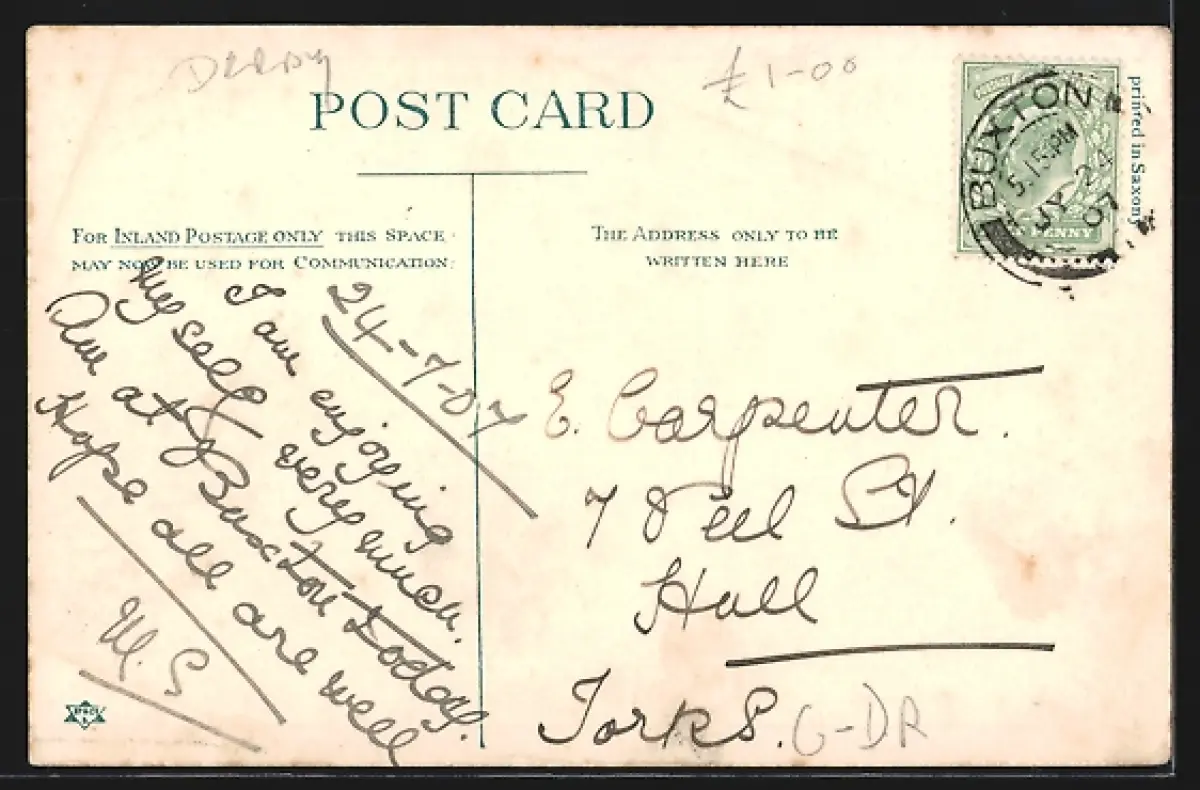 Derby
£1-00
POST CARD
printed in Saxony
BUXTON
5.15 PM
JY 24
07
PENNY
FOR INLAND POSTAGE ONLY THIS SPACE
MAY NOW BE USED FOR COMMUNICATION.
THE ADDRESS ONLY TO BE
WRITTEN HERE
24-7-07
I am enjoying
myself very much.
Am at Buxton today.
Hope all are well
M. S
E. Carpenter.
7 Peel St.
Hull
Yorks.
G-DR